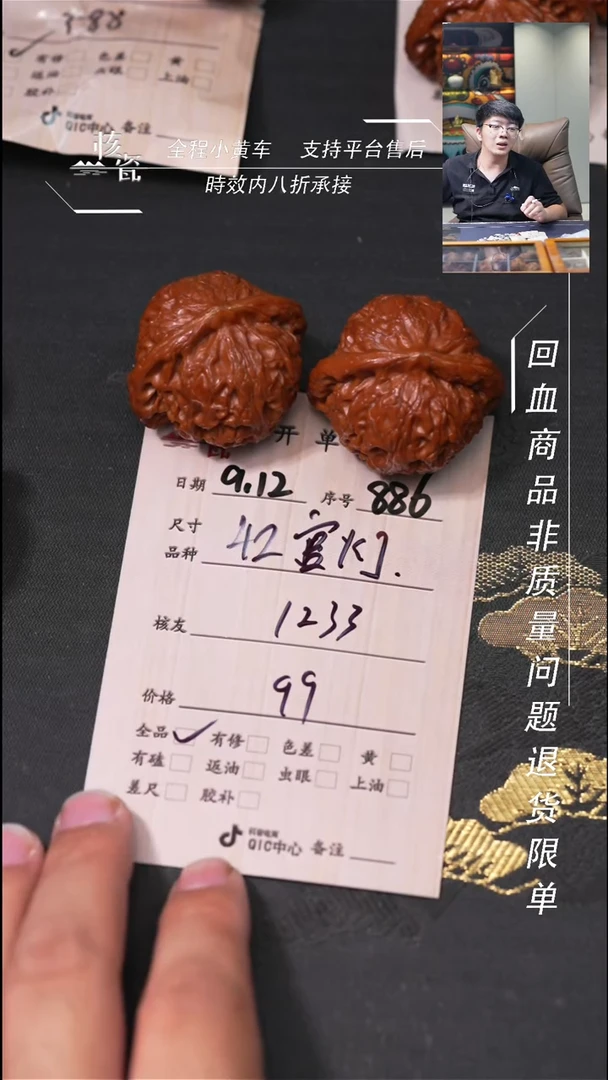 3-88
有修 色差 黄
返油 虫眼 上油
胶补
QIC中心 备注
核瓷
全程小黄车 支持平台售后
時效内八折承接
回血商品非质量问题退货限单
开单
日期 9.12 序号 886
尺寸
品种 42宫灯.
核友 1233
价格 99
全品 有修 色差 黄
有磕 返油 虫眼 上油
差尺 胶补
抖音电商
QIC中心 备注